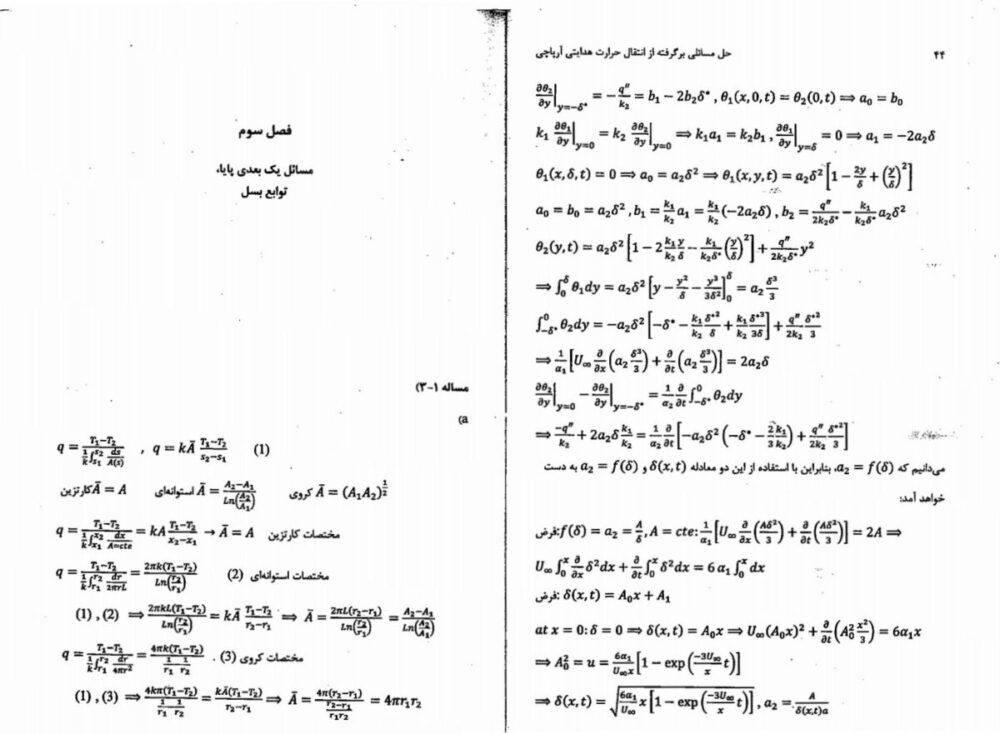 ۴۴ حل مسائلی برگرفته از انتقال حرارت هدایتی آرپاچی
∂θ₂/∂y|_{y=−δ*} = −q″/k₂ = b₁ − 2b₂δ* , θ₁(x, 0, t) = θ₂(0, t) ⟹ a₀ = b₀
k₁ ∂θ₁/∂y|_{y=0} = k₂ ∂θ₂/∂y|_{y=0} ⟹ k₁a₁ = k₂b₁ , ∂θ₁/∂y|_{y=δ} = 0 ⟹ a₁ = −2a₂δ
θ₁(x, δ, t) = 0 ⟹ a₀ = a₂δ² ⟹ θ₁(x, y, t) = a₂δ² [1 − 2y/δ + (y/δ)²]
a₀ = b₀ = a₂δ² , b₁ = k₁/k₂ a₁ = k₁/k₂ (−2a₂δ) , b₂ = q″/2k₂δ* − k₁/k₂δ* a₂δ²
θ₂(y, t) = a₂δ² [1 − 2 k₁/k₂ y/δ − k₁/k₂δ* (y/δ)²] + q″/2k₂δ* y²
⟹ ∫₀^δ θ₁dy = a₂δ² [y − y²/δ − y³/3δ²]₀^δ = a₂ δ³/3
∫_{−δ*}^0 θ₂dy = −a₂δ² [−δ* − k₁/k₂ δ*²/δ + k₁/k₂ δ*³/3δ] + q″/2k₂ δ*²/3
⟹ 1/α₁ [U∞ ∂/∂x (a₂ δ³/3) + ∂/∂t (a₂ δ³/3)] = 2a₂δ
∂θ₂/∂y|_{y=0} − ∂θ₂/∂y|_{y=−δ*} = 1/α₂ ∂/∂t ∫_{−δ*}^0 θ₂dy
⟹ −q″/k₂ + 2a₂δ k₁/k₂ = 1/α₂ ∂/∂t [−a₂δ² (−δ* − 2/3 k₁/k₂) + q″/2k₂ δ*²/3]
می‌دانیم که a₂ = f(δ)، بنابراین با استفاده از این دو معادله δ(x, t) و a₂ = f(δ) به دست
خواهد آمد:
فرض: f(δ) = a₂ = A/δ , A = cte: 1/α₁ [U∞ ∂/∂x (Aδ²/3) + ∂/∂t (Aδ²/3)] = 2A ⟹
U∞ ∫₀^x ∂/∂x δ²dx + ∂/∂t ∫₀^x δ²dx = 6 α₁ ∫₀^x dx
فرض: δ(x, t) = A₀x + A₁
at x = 0: δ = 0 ⟹ δ(x, t) = A₀x ⟹ U∞(A₀x)² + ∂/∂t (A₀² x²/3) = 6α₁x
⟹ A₀² = u = 6α₁/U∞x [1 − exp(−3U∞/x t)]
⟹ δ(x, t) = √(6α₁/U∞ x [1 − exp(−3U∞/x t)]) , a₂ = A/δ(x,t)a
فصل سوم
مسائل یک بعدی پایا.
توابع بسل
مساله ۱-۳)
a)
q = (T₁−T₂)/(1/k ∫_{s₁}^{s₂} ds/A(s)) , q = kĀ (T₁−T₂)/(s₂−s₁) (1)
کارتزین Ā = A استوانه‌ای Ā = (A₂−A₁)/Ln(A₂/A₁) کروی Ā = (A₁A₂)^{1/2}
مختصات کارتزین q = (T₁−T₂)/(1/k ∫_{x₁}^{x₂} dx/A=cte) = kA (T₁−T₂)/(x₂−x₁) → Ā = A
مختصات استوانه‌ای (2) q = (T₁−T₂)/(1/k ∫_{r₁}^{r₂} dr/2πrL) = 2πk(T₁−T₂)/Ln(r₂/r₁)
(1) , (2) ⟹ 2πkL(T₁−T₂)/Ln(r₂/r₁) = kĀ (T₁−T₂)/(r₂−r₁) ⟹ Ā = 2πL(r₂−r₁)/Ln(r₂/r₁) = (A₂−A₁)/Ln(A₂/A₁)
مختصات کروی (3) . q = (T₁−T₂)/(1/k ∫_{r₁}^{r₂} dr/4πr²) = 4πk(T₁−T₂)/(1/r₁ − 1/r₂)
(1) , (3) ⟹ 4kπ(T₁−T₂)/(1/r₁ − 1/r₂) = kĀ(T₁−T₂)/(r₂−r₁) ⟹ Ā = 4π(r₂−r₁)/((r₂−r₁)/r₁r₂) = 4πr₁r₂